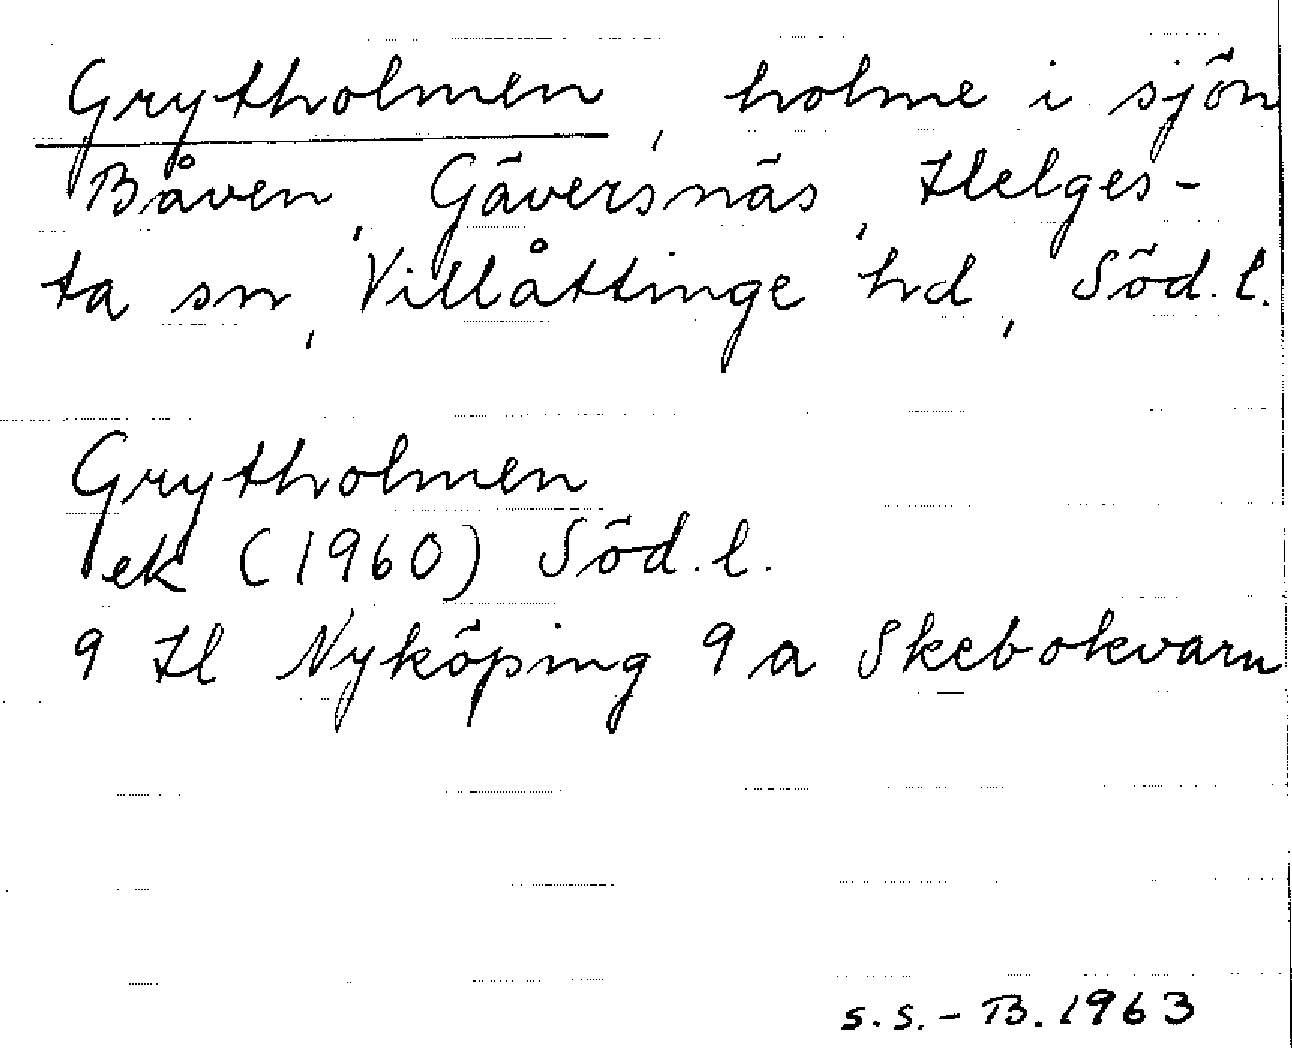 Grytholmen, holme i sjön
Båven, Gäversnäs, Helges-
ta sn, Villåttinge hd, Söd. l.
Grytholmen
ek (1960) Söd. l.
9 H Nyköping 9 a Skebokvarn
S.S. - B. 1963